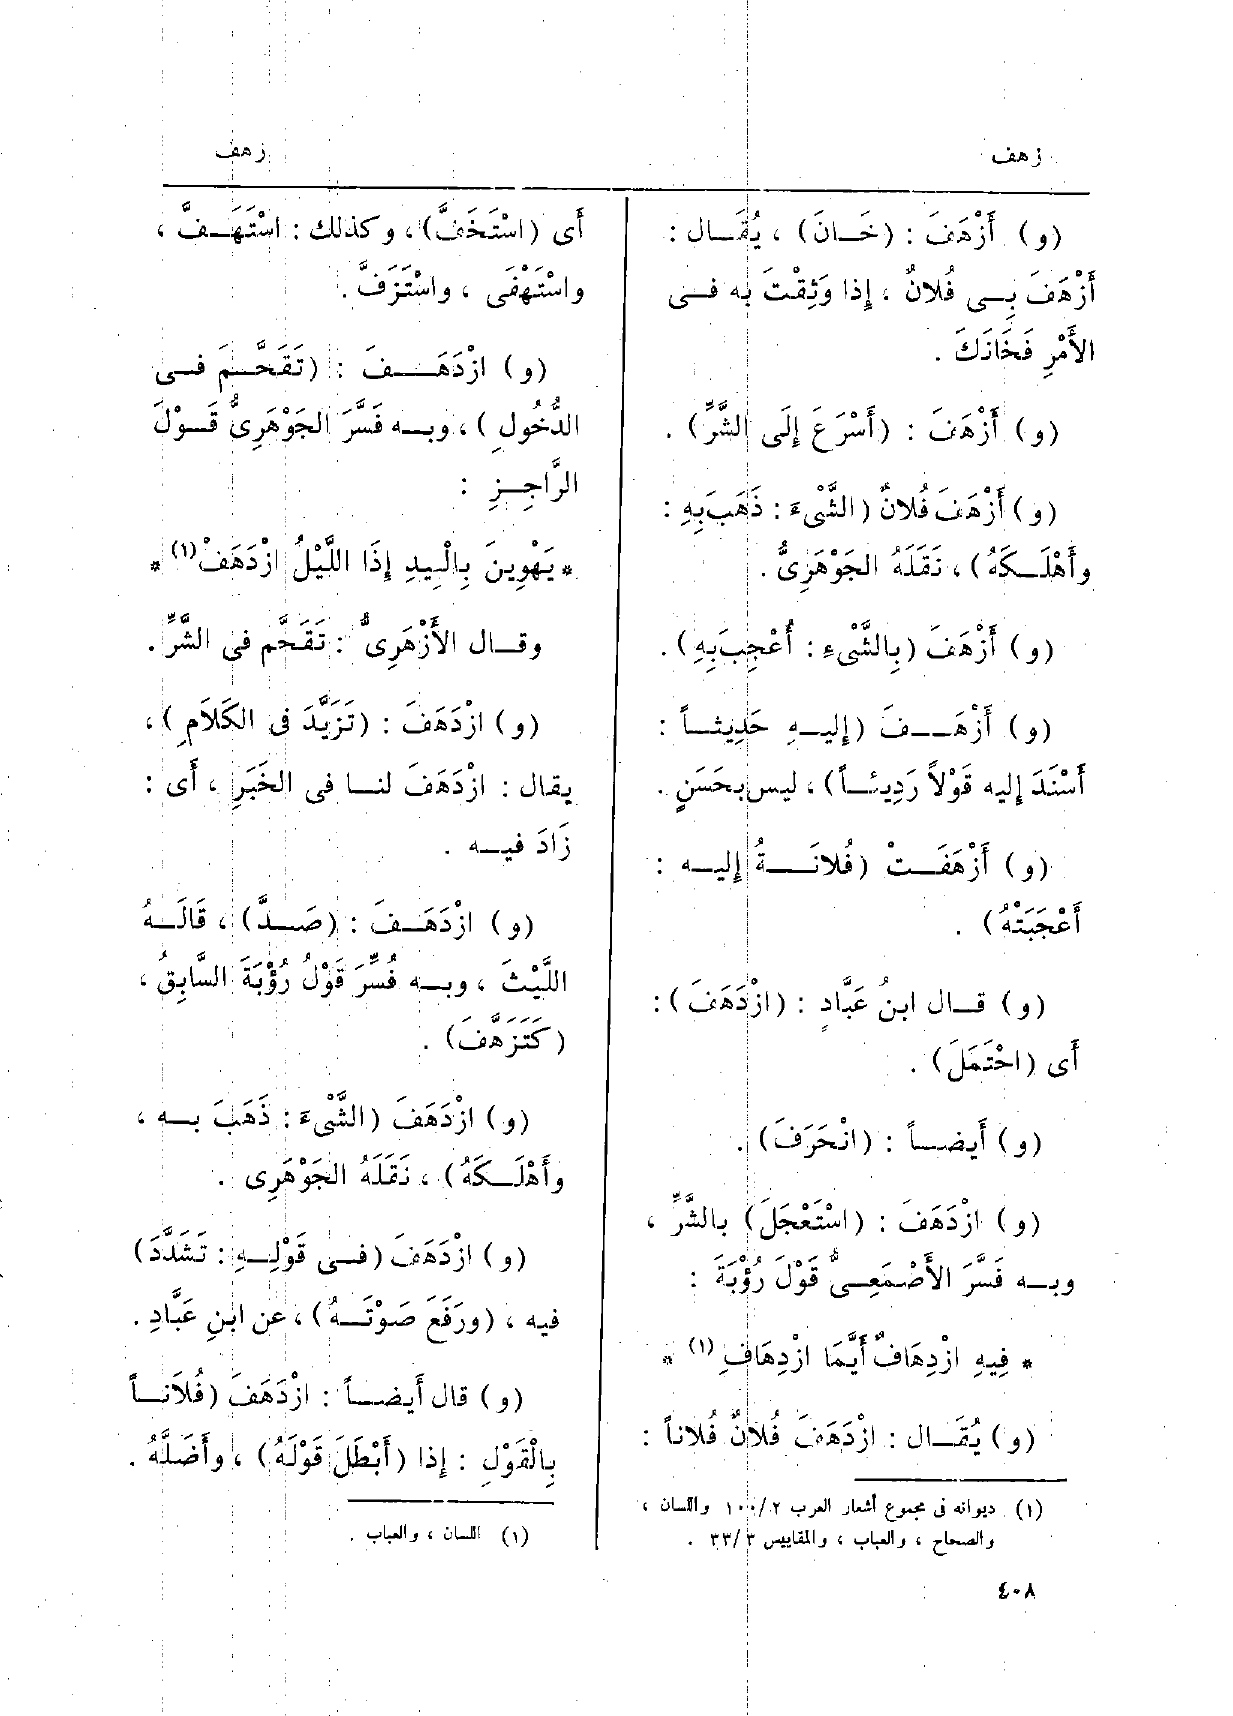 زهف
زهف
(و) أَزْهَفَ : (خَـانَ) ، يُقَـال :
أَزْهَفَ بِـى فُلانٌ ، إذا وَثِقْتَ بِه فـى
الأَمْرِ فَخَانَكَ .
(و) أَزْهَفَ : (أَسْرَعَ إِلَى الشَّرِّ) .
(و) أَزْهَفَ فُلانٌ (الشَّىْءَ : ذَهَبَ بِهِ :
وأَهْلَـكَهُ) ، نَقَلَهُ الجَوْهَرِىُّ .
(و) أَزْهَفَ (بِالشَّىْءِ : أُعْجِبَ بِهِ) .
(و) أَزْهَــفَ (إليـهِ حَدِيثـاً :
أَسْنَدَ إليه قَوْلاً رَدِيئـاً) ، ليس بحَسَنٍ .
(و) أَزْهَفَـتْ (فُلانَــةُ إليـه :
أَعْجَبَتْهُ) .
(و) قـال ابنُ عَبَّادٍ : (ازْدَهَفَ) :
أَى (احْتَمَلَ) .
(و) أَيضـاً : (انْحَرَفَ) .
(و) ازْدَهَفَ : (اسْتَعْجَلَ) بالشَّرِّ ،
وبـه فَسَّرَ الأَصْمَعِـىُّ قَوْلَ رُؤْبَةَ :
* فِيهِ ازْدِهَافٌ أَيَّمَا ازْدِهَافِ (١) *
(و) يُقَـال : ازْدَهَفَ فُلانٌ فُلاناً :
(١) ديوانه فى مجموع أشعار العرب ١٠٠/٢ واللسان ،
والصحاح ، والعباب ، والمقاييس ٣٣/٣ .
أَى (اسْتَخَفَّ) ، وكذلك : اسْتَهَـفَّ ،
واسْتَهْفَى ، واسْتَزَفَّ .
(و) ازْدَهَــفَ : (تَقَحَّـمَ فـى
الدُّخُولِ) ، وبـه فَسَّرَ الجَوْهَرِىُّ قَـوْلَ
الرَّاجِـزِ :
* يَهْوِينَ بِالْبِيدِ إِذَا اللَّيْلُ ازْدَهَفْ (١) *
وقـال الأَزْهَرِىُّ : تَقَحَّم فى الشَّرِّ .
(و) ازْدَهَفَ : (تَزَيَّدَ فى الكَلَامِ) ،
يقال : ازْدَهَفَ لنـا فى الخَبَرِ ، أَى :
زَادَ فيـه .
(و) ازْدَهَـفَ : (صَـدَّ) ، قَالَـهُ
اللَّيْثُ ، وبـه فُسِّرَ قَوْلُ رُؤْبَةَ السَّابِقُ ،
(كَتَزَهَّفَ) .
(و) ازْدَهَفَ (الشَّىْءَ : ذَهَبَ بـه ،
وأَهْلَـكَهُ) ، نَقَلَهُ الجَوْهَرِى .
(و) ازْدَهَفَ (فـى قَوْلِـهِ : تَشَدَّدَ)
فيه ، (ورَفَعَ صَوْتَـهُ) ، عن ابنِ عَبَّادٍ .
(و) قال أَيضـاً : ازْدَهَفَ (فُلَانـاً
بِالْقَوْلِ : إذا (أَبْطَلَ قَوْلَهُ) ، وأَضَلَّهُ .
(١) اللسان ، والعباب .
٤٠٨